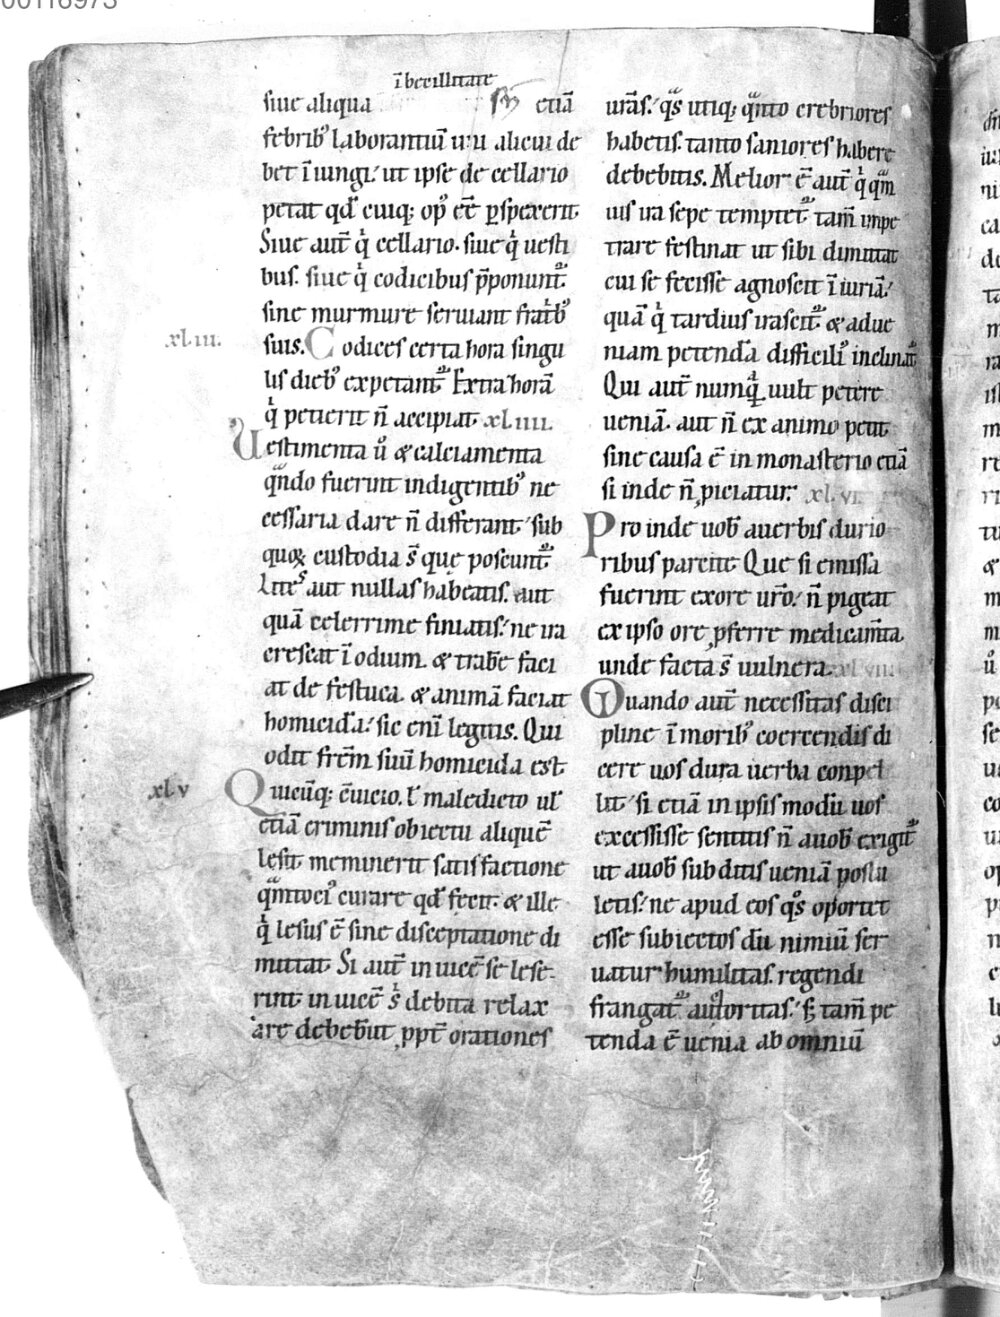 00116973
i̅becillitate
siue aliqua siue etiā
febrib᷒ laborantiū uni alicui de
bet īiungi. ut ipse de cellario
petat qd̄ cuiq; op᷒ eē̄ ꝑspexerit.
Siue aut̄ qͥ cellario. siue qͥ uesti
bus. siue qͥ codicibus p̄ponunt᷑
sine murmure seruiant fratrib᷒
xl.iii. suis. Codices certa hora singu
lis dieb᷒ expetant᷑ Extra horā
qͥ petierit n̄ accipiat. xl.iiii.
Uestimenta u̾ & calciamenta
qͣndo fuerint indigentib᷒ ne
cessaria dare n̄ differant sub
quoꝝ custodia s̄ que poscunt᷑
Lites aut nullas habeatis. aut
quā celerrime finiatis. ne ira
crescat ī odium. & trabē faci
at de festuca. & animā faciat
homicidā. sic eni̅ legitis. Qui
odit frēm suū homicida est
xlv Quicūq; cōuicio. l̄ maledicto ul̄
etiā criminis obiectu aliquē
lesit meminerit satisfactione
qͣntoci᷒ curare qd̄ fecit. & ille
qͥ lesus ē sine disceptatione di
mittat. Si aut̄ inuicē se lese
rint. inuicē sͥ debita relax
are debeb̄ut ꝓpt̄ orationes
urās. qͦs utiq; qͣnto crebriores
habetis. tanto saniores habere
debebitis. Melior ē aut̄ qͥ qͣm
uis ira sepe temptet᷑ tam̄ impe
trare festinat ut sibi dimittat
cui se fecisse agnoscit īiuriā.
quā qͥ tardius irascit᷑ & ad ue
niam petendā difficili᷒ inclinat᷑
Qui aut̄ numqͣ uult petere
ueniā. aut n̄ ex animo petit
sine causa ē in monasterio etiā
si inde n̄ ꝓiciatur. xl.vi.
Proinde uob̄ a uerbis durio
ribus parcite Que si emissa
fuerint ex ore ur̄o. n̄ pigeat
ex ipso ore ꝓferre medicam̄ta
unde facta s̄ uulnera. xl.vii.
Quando aut̄ necessitas disci
pline ī morib᷒ coercendis di
cere uos dura uerba conpel
lit si etiā in ipsis modū uos
excessisse sentitis n̄ a uob̄ exigit᷑
ut a uob̄ subditis ueniā postu
letis. ne apud eos qͦs oportet
esse subiectos dū nimiū ser
uatur humilitas. regendi
frangat᷑ auctoritas. sꝫ tam̄ pe
tenda ē uenia ab omniū